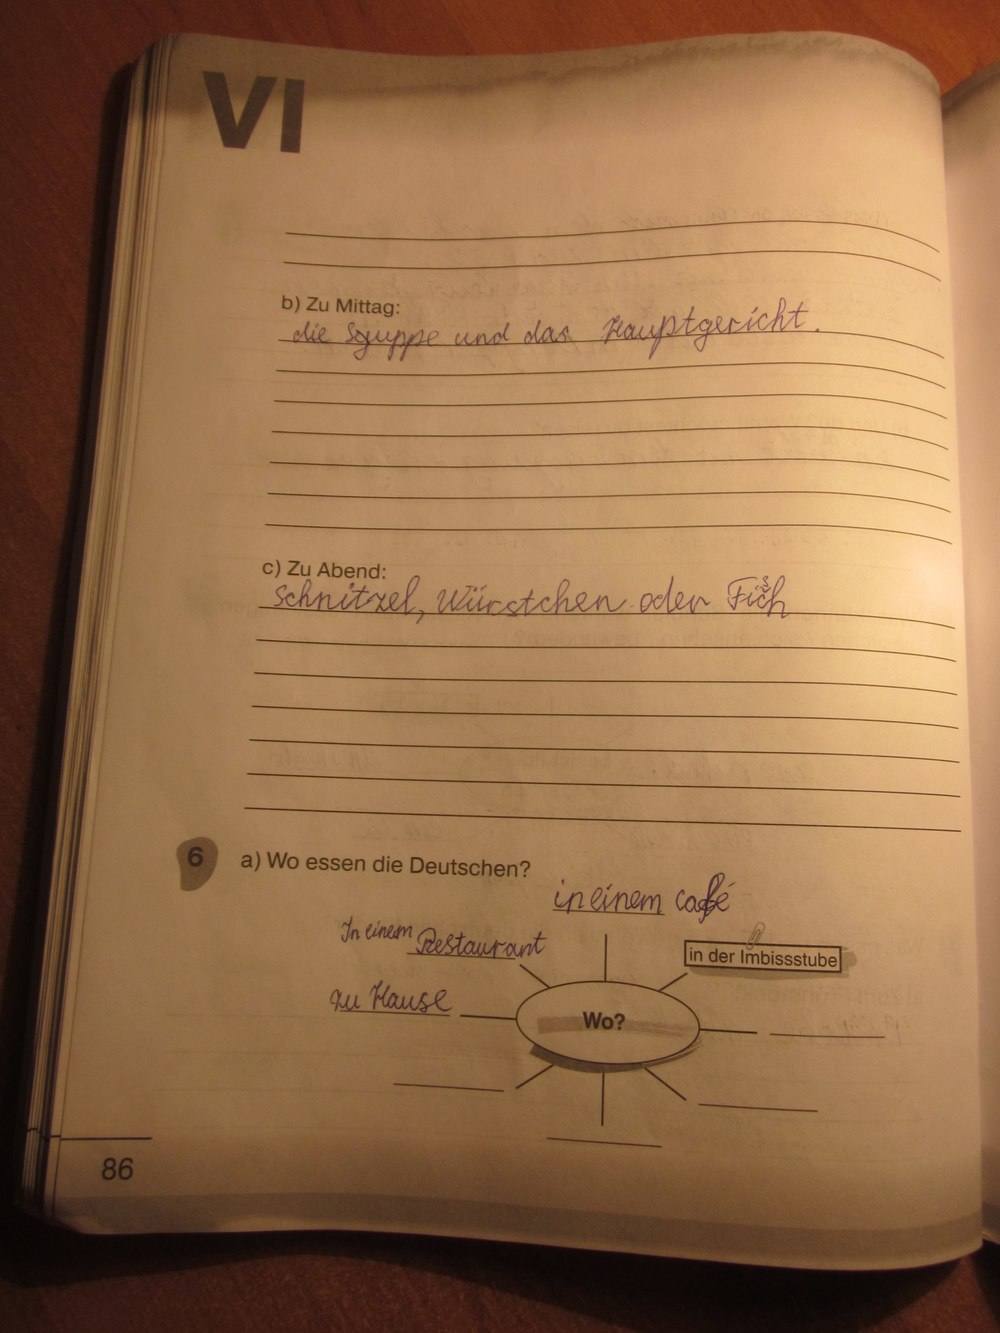 VI
b) Zu Mittag:
die Sguppe und das Hauptgericht.
c) Zu Abend:
Schnitzel, Würstchen oder Fisch
6
a) Wo essen die Deutschen?
in einem café
In einem Restaurant
in der Imbissstube
zu Hause
Wo?
86